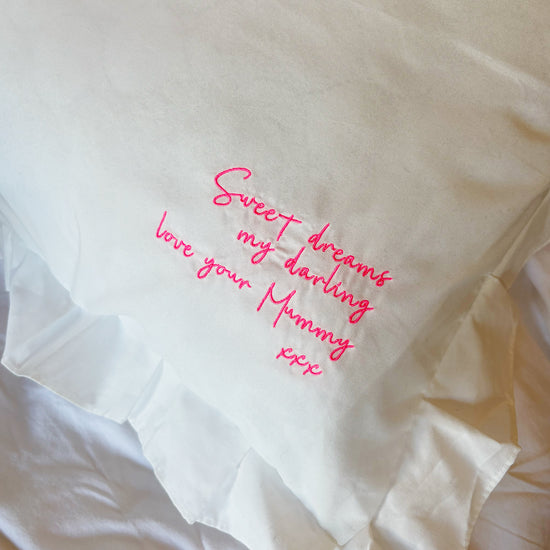 Sweet dreams
my darling
love your Mummy
xxx